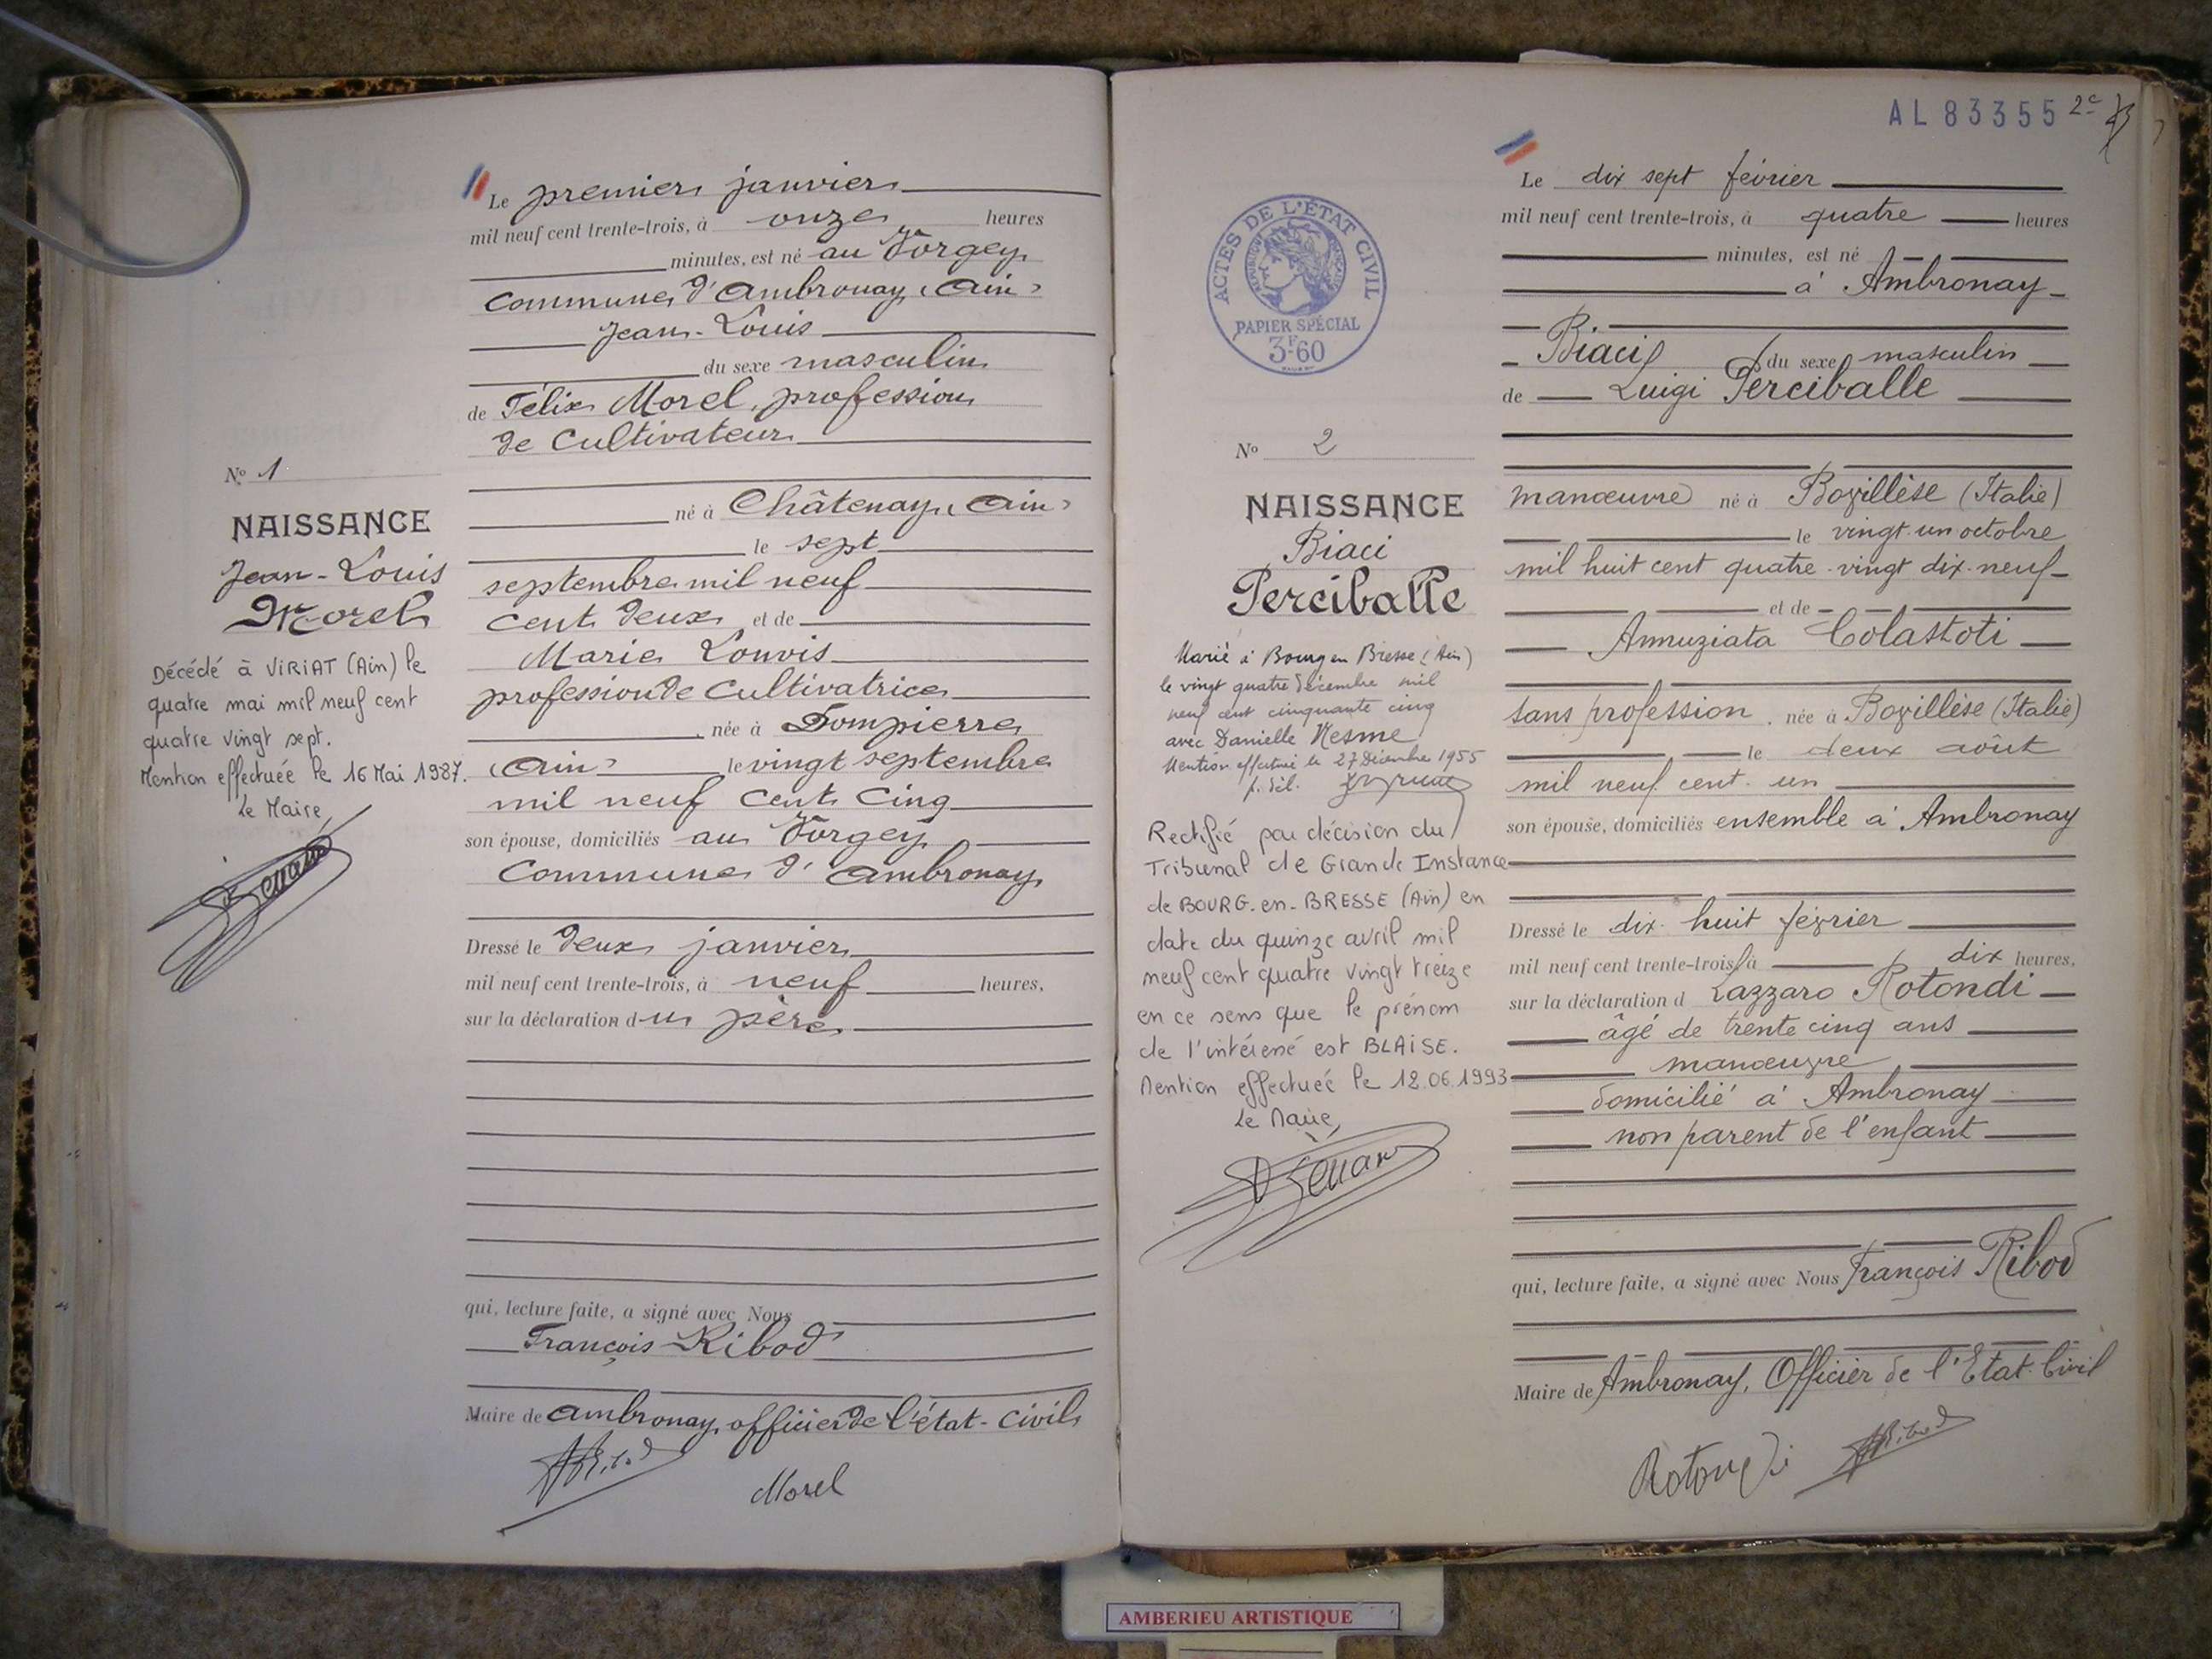 Le premier janvier
mil neuf cent trente-trois, à onze heures
minutes, est né au Vorgey
commune d'Ambronay (Ain)
Jean-Louis
du sexe masculin
de Félix Morel, profession
de cultivateur
né à Châtenay (Ain)
le sept
septembre mil neuf
cent deux et de
Marie Louvis
profession de cultivatrice
née à Dompierre
(Ain) le vingt septembre
mil neuf cent cinq
son épouse, domiciliés au Vorgey
Commune d'Ambronay
Dressé le deux janvier
mil neuf cent trente-trois, à neuf heures,
sur la déclaration du père
qui, lecture faite, a signé avec Nous
François Ribod
Maire de Ambronay, officier de l'état-civil
Morel
No 1
NAISSANCE
Jean-Louis
Morel
Décédé à VIRIAT (Ain) le
quatre mai mil neuf cent
quatre vingt sept.
Mention effectuée le 16 Mai 1987.
Le Maire,
AL 83355
2e
ACTES DE L'ÉTAT CIVIL
PAPIER SPÉCIAL
3F60
No 2
NAISSANCE
Biaci
Perciballe
Marié à Bourg en Bresse (Ain)
le vingt quatre décembre mil
neuf cent cinquante cinq
avec Danielle Nesme
Mention effectuée le 27 Décembre 1955
p. dél.
Rectifié par décision du
Tribunal de Grande Instance
de BOURG-en-BRESSE (Ain) en
date du quinze avril mil
neuf cent quatre vingt treize
en ce sens que le prénom
de l'intéressé est BLAISE.
Mention effectuée le 12.06.1993
Le Maire,
Le dix sept février
mil neuf cent trente-trois, à quatre heures
minutes, est né
à Ambronay
Biaci du sexe masculin
de Luigi Perciballe
manœuvre né à Bovillèse (Italie)
le vingt-un octobre
mil huit cent quatre-vingt dix-neuf
et de
Annuziata Colastoti
sans profession, née à Bovillèse (Italie)
le deux août
mil neuf cent un
son épouse, domiciliés ensemble à Ambronay
Dressé le dix-huit février
mil neuf cent trente-trois, à dix heures,
sur la déclaration d Lazzaro Rotondi
âgé de trente cinq ans
manœuvre
domicilié à Ambronay
non parent de l'enfant
qui, lecture faite, a signé avec Nous François Ribod
Maire de Ambronay, Officier de l'Etat-Civil
Rotondi
AMBERIEU ARTISTIQUE